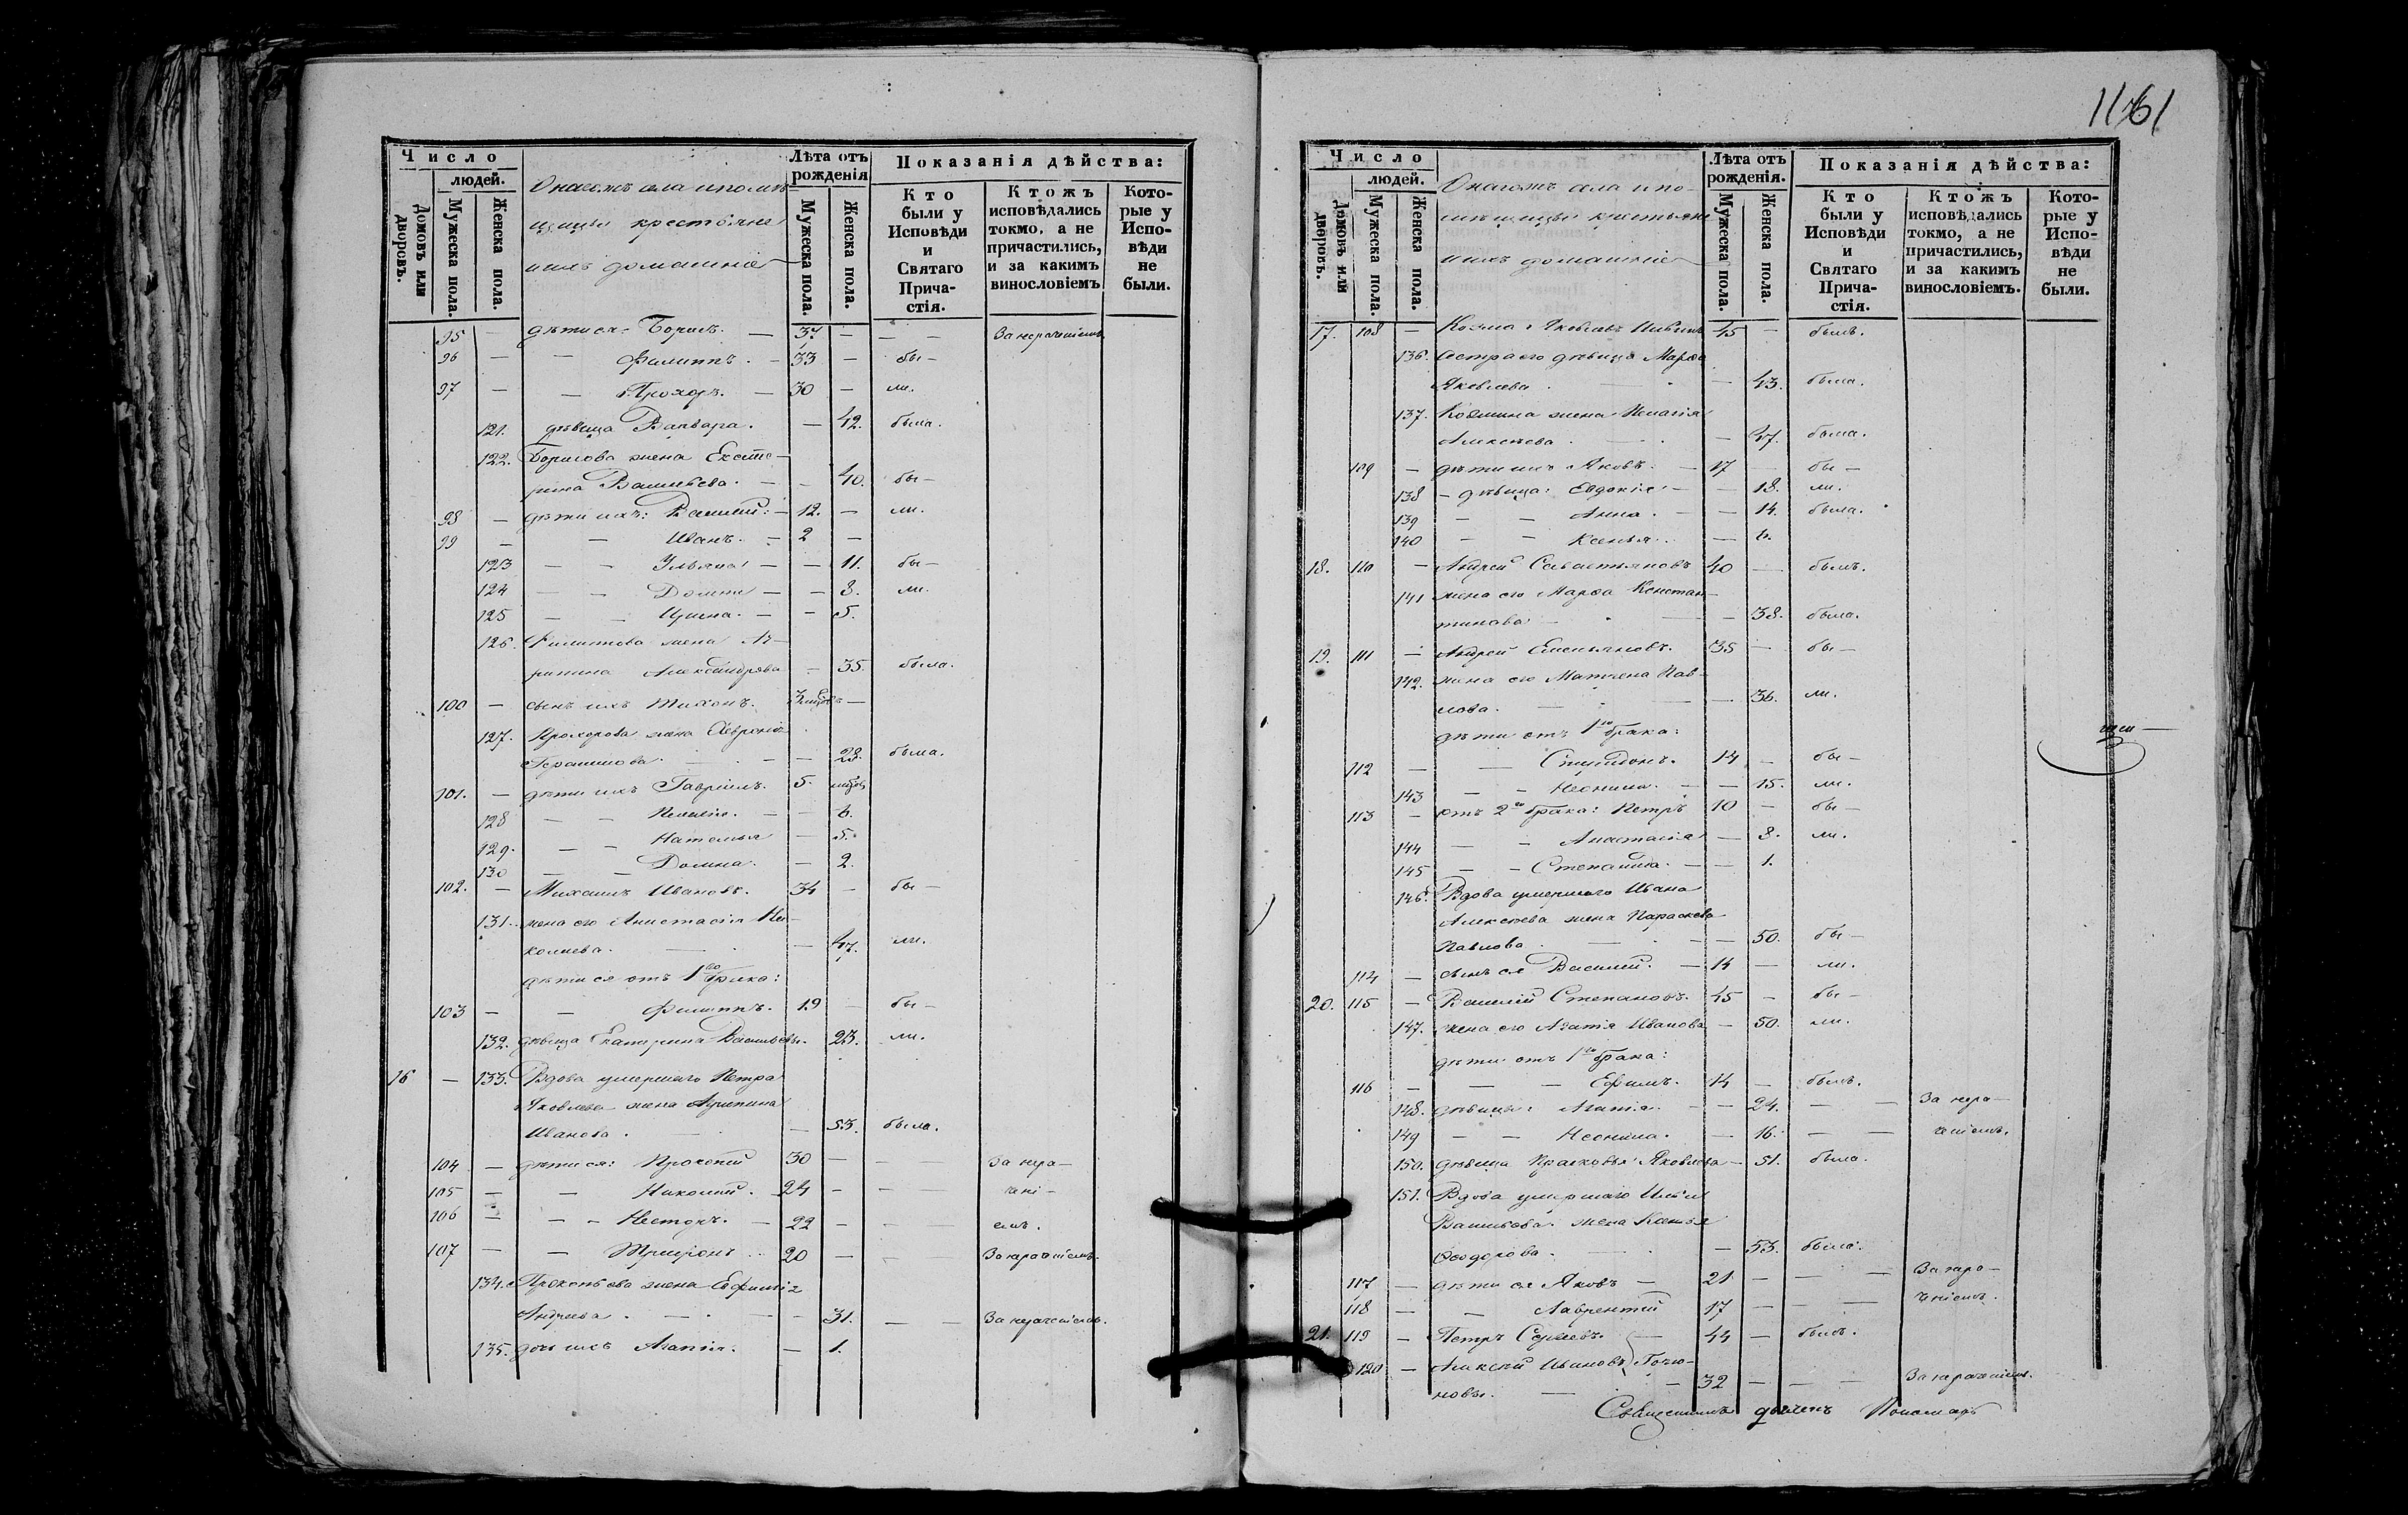 Число
людей.
Домовъ или дворовъ.
Мужеска пола.
Женска пола.
Онагожъ села и помѣ-
щицы крестьяне
и ихъ домашніе
Лѣта отъ рожденія
Мужеска пола.
Женска пола.
Показанія дѣйства:
Кто были у Исповѣди и Святаго Прича-стія.
Ктожъ исповѣдались токмо, а не причастились, и за какимъ винословіемъ
Кото-рые у Испо-вѣди не были.
95 — дѣти ея: Борисъ. — 37 — — — За нерачиемъ
96 — — Филиппъ. — 33 — бы —
97 — — Прохоръ. — 30 — ли.
121. дѣвица Варвара. — 42. была.
122. Борисова жена Екате-
рина Васильева. — — 40. бы —
98 — дѣти ихъ: Василій: — 12. — ли.
99 — — Иванъ. — 2 —
123 — — Ульяна — — 11. бы —
124 — — Домна — — 8. ли.
125 — — Ирина. — — 5.
126. Филиппова жена
Александрова — 35. была.
100 — сынъ ихъ Тихонъ. 3
127. Прохорова жена Феврония
Герасимова. — — 28. была.
101. — дѣти ихъ Гавріилъ. 5.
128 — — Пелагія. — — 6.
129. — — Наталья — 5.
130 — — Домна. — 2.
102. — Михаилъ Ивановъ. 34 — бы —
131. жена его Анастасія Ни-
колаева. — — 47. ли.
дѣти ея отъ 1го брака:
103 — — Филиппъ. 19 — бы —
132. дѣвица Екатерина Васильева. 23. ли.
16 — 133. Вдова умершаго Петра
Яковлева жена Агрипина
Иванова. — — 53. была.
104 — дѣти ея: Прокопій 30 — — За нера —
105 — — Николай. 24 — — — чені —
106 — — — Несторъ. — 22 — — емъ.
107 — — 20 — — За нерачіемъ.
134. Прокопьева жена Евфимія
Андреева. — — — 31. — — За нерачіемъ.
135. дочь ихъ Агапія. — 1.
1161
Число
людей.
Домовъ или дворовъ.
Мужеска пола.
Женска пола.
Онагожъ села и по-
мѣщицы крестьяне
и ихъ домашніе
Лѣта отъ рожденія.
Мужеска пола.
Женска пола.
Показанія дѣйства:
Кто были у Исповѣди и Святаго Прича-стія.
Ктожъ исповѣдались токмо, а не причастились, и за какимъ винословіемъ.
Кото-рые у Испо-вѣди не были.
17. 108 — Козма Яковлевъ 45 — былъ.
136. Сестра его дѣвица Марфа
Яковлева. — — 43. была.
137. Козмина жена Пелагія
Алексѣева. — — 47. была.
109 — дѣти ихъ Яковъ. — 17 — бы —
138 — дѣвица: Евдокія — — 18. ли.
139 — — Анна. — — 14. была.
140 — — Ксенія. — 6.
18. 110 — Андрей Савастьяновъ 40 — былъ.
141 жена его Марфа Констан-
тинова — — — 38. была.
19. 111 — Андрей Емельяновъ. 35 — бы —
142. жена его Матрена Пав-
лова. — — — 36. ли.
дѣти отъ 1го брака:
112 — — Спиридонъ. 14 — бы —
143 — — Неонила. — — 15. ли.
113 — отъ 2го брака: Петръ 10 — бы —
144 — — Анастасія — 8. ли.
145 — — Степанида. — — 1.
146. Вдова умершаго Ивана
Алексѣева жена Параскева
Павлова. — — — 50. бы —
114 — сынъ ея Василій. — 14 — ли.
20. 115 — Василій Степановъ. 45 — бы —
147. жена его Агапія Иванова — 50. ли.
дѣти отъ 1го брака:
116 — — — Ефимъ. 14 — былъ.
148. дѣвицы: Агапія. — — 24. — — За нера —
149 — — Неонила. — 16. — — чніемъ.
150. дѣвица Прасковья Яковлева — 51. была.
151. Вдова умершаго
Васильева жена Ксенья
Феодорова. — — 53. была.
117 — дѣти ея Яковъ — 21 — — — За нера —
118 — — Лаврентій 17 — — — чніемъ.
21. 119 — Петръ Сергѣевъ. — 44 — былъ.
120 — Алексѣй Ивановъ
новы. — — 32 — — — За нерачіемъ.
Священникъ Пономарь